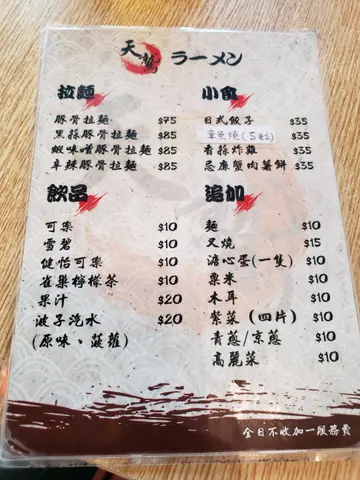 天鷲 ラーメン
拉麵
豚骨拉麵 $75
黑蒜豚骨拉麵 $85
蝦味噌豚骨拉麵 $85
辛辣豚骨拉麵 $85
小食
日式餃子 $35
章魚燒(5粒) $35
香蒜炸雞 $35
忌廉蟹肉薯餅 $35
飲品
可樂 $10
雪碧 $10
健怡可樂 $10
雀巢檸檬茶 $10
果汁 $20
波子汽水 $20
(原味、菠蘿)
追加
麵 $10
叉燒 $15
溏心蛋(一隻) $10
粟米 $10
木耳 $10
紫菜 (四片) $10
青蔥/京蔥 $10
高麗菜 $10
全日不收加一服務費